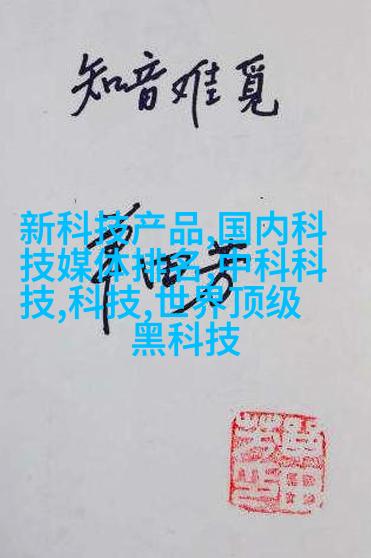 知音难觅
新科技产品,国内科
技媒体排名,中科科
技,科技,世界顶级
黑科技